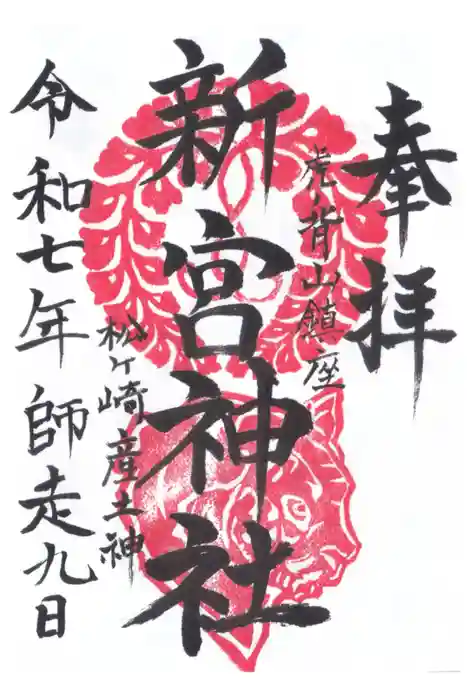 奉拝
虎ヶ背山鎮座
新宮神社
松ヶ崎産土神
令和七年師走九日